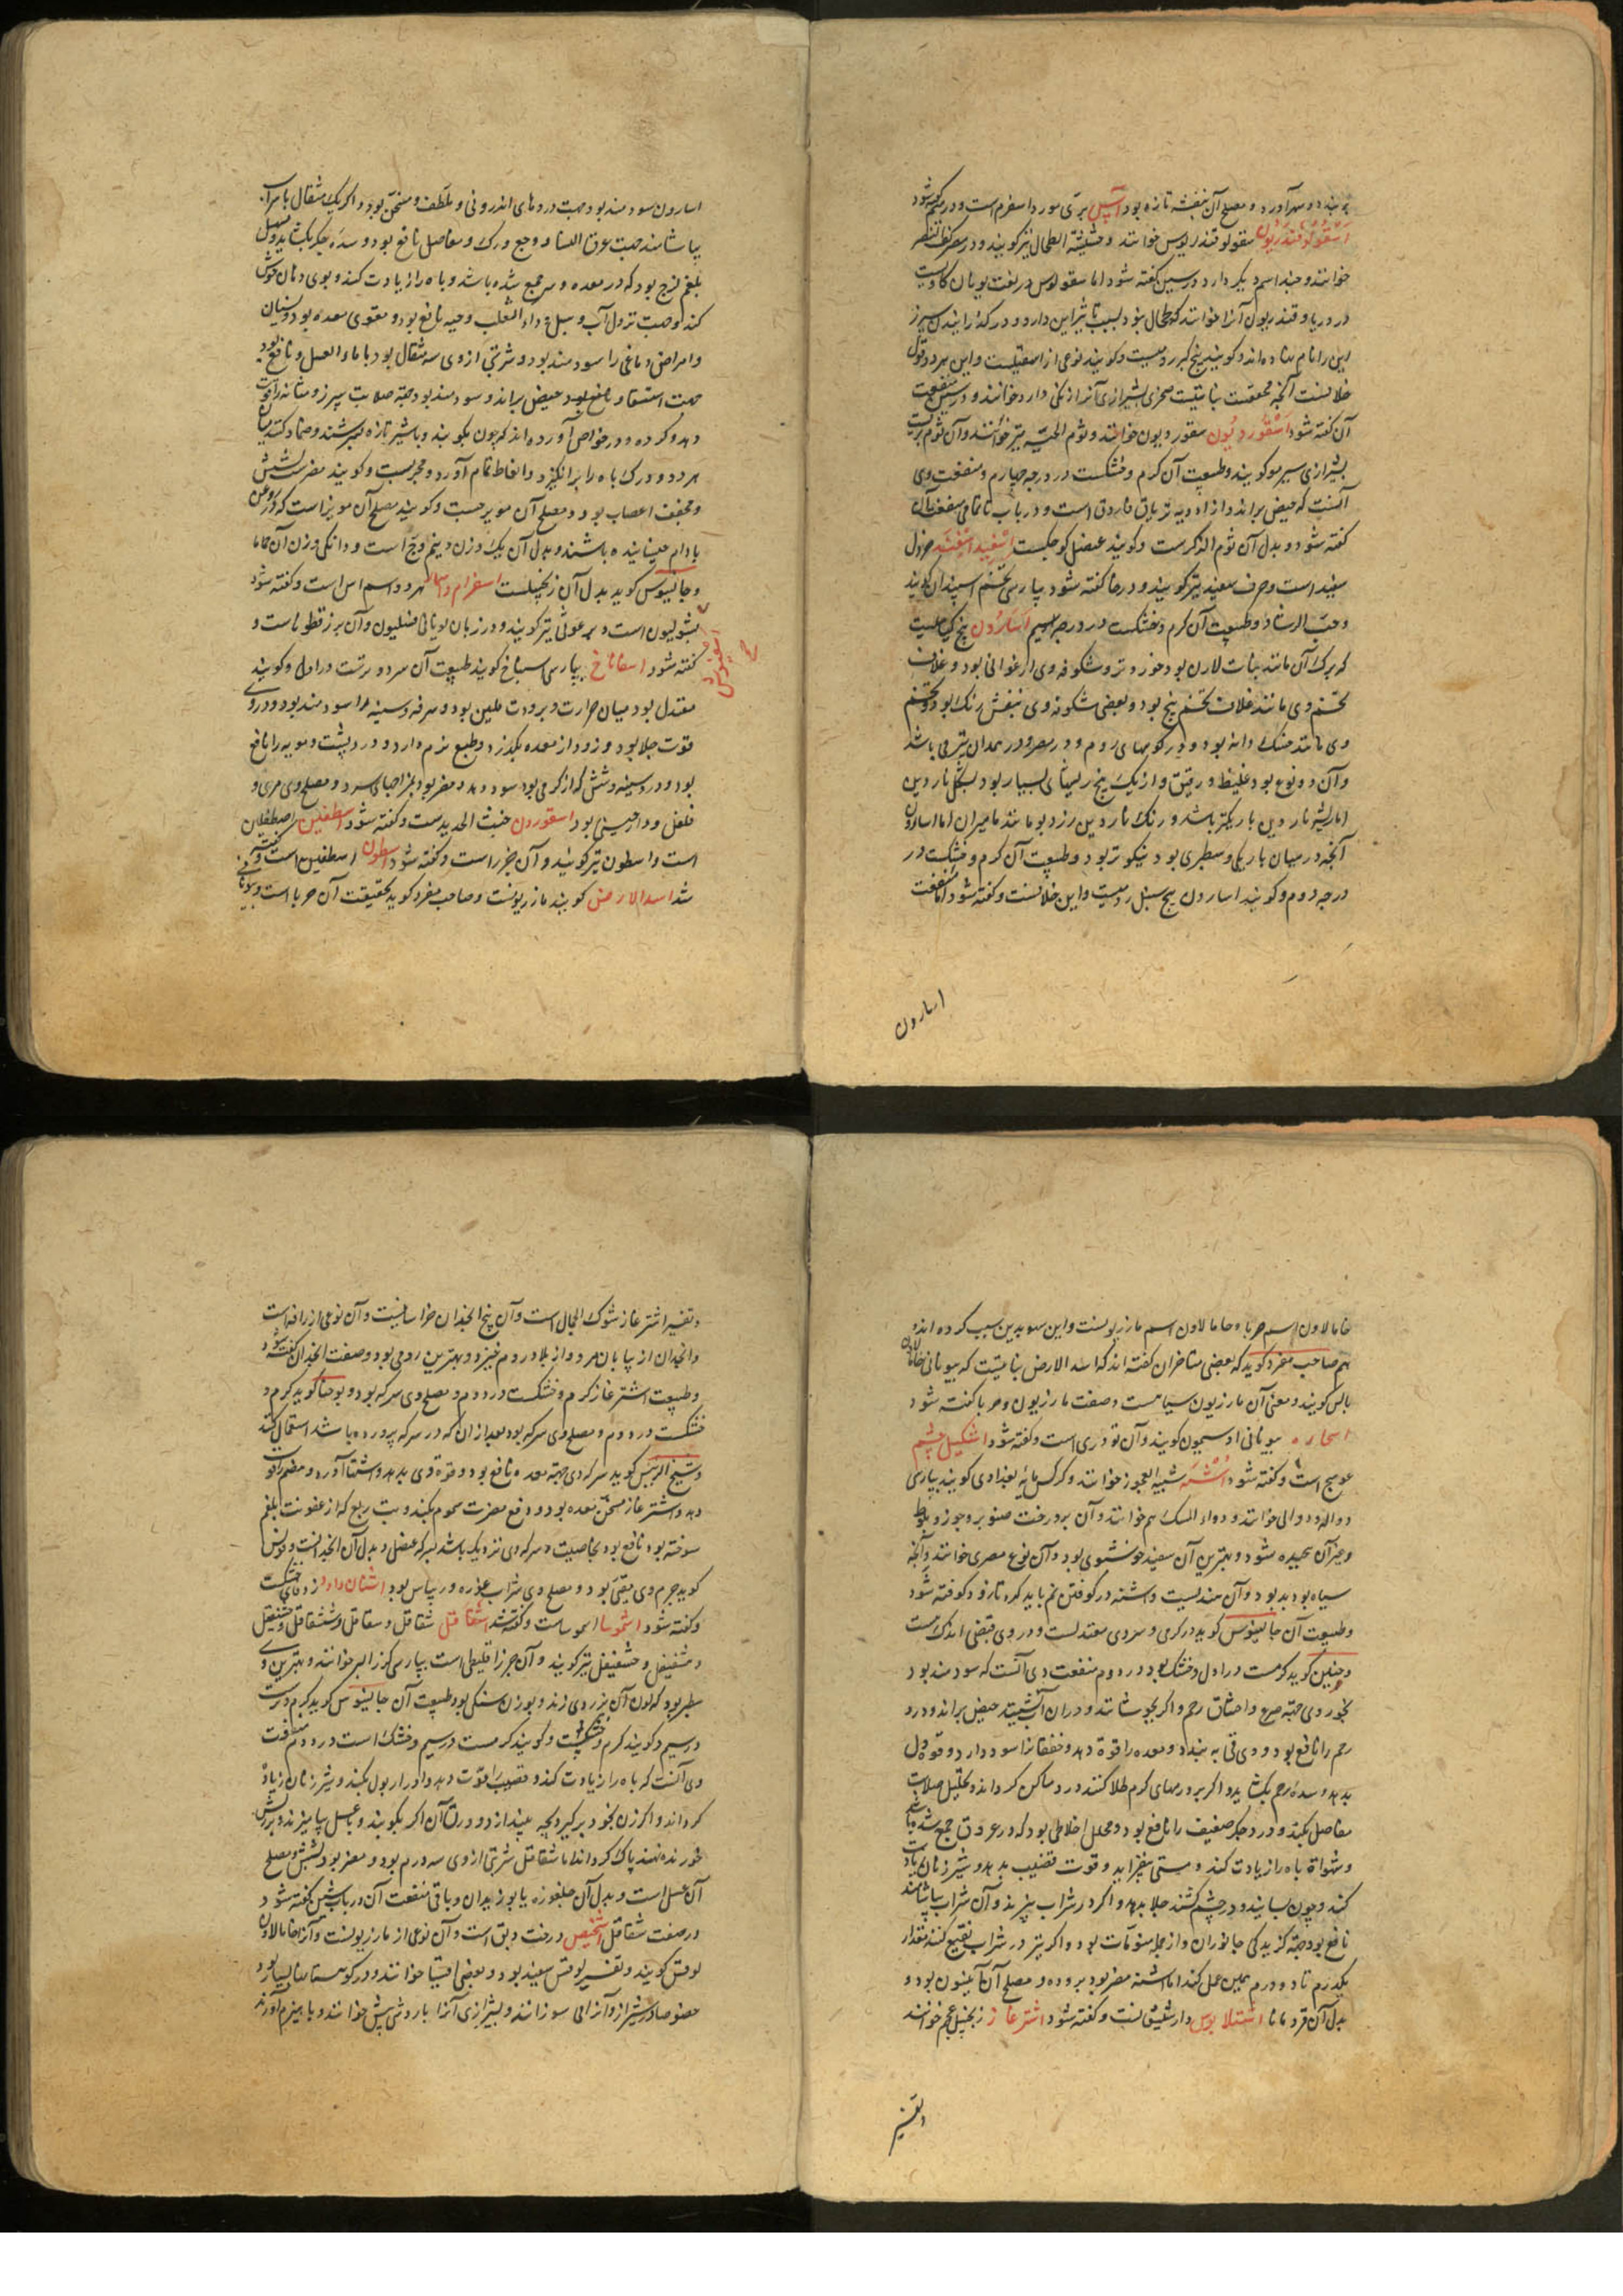 ببندد و سهر آورد و مصلح آن بنفشه تازه بود آس بری مورد اسفرم است و در میم گفته شود
اسقولوقندریون سقولوقندریوس خوانند و حشیشة الطحال نیز گویند و در مصر کف النسر
خوانند و چند اسم دیگر دارد در سین گفته شود اما سقولوس در لغت یونان کاویست
در دریا و قندریون آنرا خوانند که طحال نبود بسبب تاثیر این دارو در گدازانیدن سپرز
این را نام نهاده‌اند و گویند بیخ کبر رومیست و گویند نوعی از اسقیلست و این هر دو قول
خلافست آنچه محققست نباتیست صخری بشیرازی آنرا زنگی دارو خوانند و در سین منفعت
آن گفته شود اسقوردیون سقوردیون خوانند و ثوم الحیه نیز خوانند و آن ثوم بریست
بشیرازی سیر مو گویند و طبیعت آن گرم و خشکست در درجه چهارم و منفعت وی
آنست که حیض براند و از ادویه تریاق فاروق است و در باب ثا تمامی منفعت آن
گفته شود و بدل آن ثوم الذکرست و گویند عنصل کوچکست اسفید اسفند خردل
سفید است و حرف سفید نیز گویند و در حا گفته شود پارسی تخم اسپندان گویند
و حب الرشاد و طبیعت آن گرم و خشکست در درجه سیم اسارون بیخ گیاهیست
که برگ آن مانند نبات لارن بود خوردتر و شکوفه وی ارغوانی بود و غلاف
تخم وی مانند غلاف تخم بنج بود و بعضی شکوفه وی بنفش رنگ بود و تخم
وی مانند خسک دانه بود و در کوههای روم و در مصر و در همدان نیز می باشد
و آن دو نوع بود غلیظ و رقیق و از یک بیخ ریشهای بسیار بود بشکل ناردین
اما ریشه ناردین باریکتر باشد و رنگ ناردین زرد بود مانند مامیران اما اسارون
آنچه در میان باریکی و سطبری بود نیکوتر بود و طبیعت آن گرم و خشکست در
درجه دوم و گویند اسارون بیخ سنبل رومیست و این خلافست و گفته شود اما منفعت
اسارون
اسارون سودمند بود جهت دردهای اندرونی و ملطف و مسخن بود و اگر یک مثقال با شراب
بیاشامند جهت عرق النسا و وجع ورک و مفاصل نافع بود و سده جگر بگشاید و مسهل
بلغم لزج بود که در معده و سر جمع شده باشد و باه را زیادت کند و بوی دهان خوش
کند و جهت نزول آب و سبل و داء الثعلب و حیه نافع بود و مقوی معده بود و نسیان
و امراض دماغی را سودمند بود و شربتی از وی سه مثقال بود با ماء العسل و نافع بود
جهت استسقا و حیض براند و سودمند بود جهة صلابت سپرز و مثانه را قوت
دهد و گرده و در خواص آورده‌اند که چون بکوبند و با شیر تازه بسرشند و ضماد کنند میان
هر دو ورک باه را برانگیزد و انعاظ تمام آورد و مجربست و گویند مضرست بشش
و مجفف اعصاب بود و مصلح آن مویزجست و گویند مصلح آن مویزاست که در روغن
بادام خیسانیده باشند و بدل آن یک وزن و نیم وج است و دانگی وزن آن حماما
و جالینوس گوید بدل آن زنجبیلست اسفرام و آس هر دو اسم آس است و گفته شود
بشولیون است و برغوثی نیز گویند و در زبان یونانی فسلیون و آن بزر قطوناست و
گفته شود اسفاناخ بپارسی اسپناخ گویند طبیعت آن سرد و ترست در اول و گویند
معتدل بود میان حرارت و برودت ملین بود و سرفه و سینه را سودمند بود و در وی
قوت جلا بود و زود از معده بگذرد و طبع نرم دارد و درد پشت دمویه را نافع
بود و درد سینه و شش که از گرمی بود سود دهد و مضر بود بمزاجهای سرد و مصلح وی مری و
فلفل و دارچینی بود اسقوردون خبث الحدیدست و گفته شود اسطفلین اصطفلین
است و اسطون نیز گویند و آن جزر است و گفته شود اسطون اسطفلین است و گفته
شد اسد الارض گویند مازریونست و صاحب مفرده گوید بحقیقت آن حربا است و بیونانی
خامالاون اسم حربا و خامالاون اسم مازریونست و این سهو بدین سبب کرده‌اند و
هم صاحب مفرده گوید که بعضی متاخران گفته‌اند که اسد الارض نباتیست که بیونانی خامالاون
مالس گویند و معنی آن مازریون سیاهست و صفت مازریون و حربا گفته شود
اسحاره بیونانی اوسیمون گویند و آن تودری است و گفته شود اشکیل چشم
عوسج است و گفته شود اشنه شیبة العجوز خوانند و کرکس مایه بغدادی گویند بپارسی
دواله و دوالی خوانند و دواء المسک هم خوانند و آن بر درخت صنوبر و جوز و بلوط
و غیر آن پیچیده شود و بهترین آن سفید خوشبوی بود و آن نوع مصری خوانند و آنچه
سیاه بود بد بود و آن هندیست و اشنه در کوفتن نم باید کرد تا زود کوفته شود
و طبیعت آن جالینوس گوید در گرمی و سردی معتدلست و در وی قبضی اندک هست
و حنین گوید گرمست در اول و خشک بود در دوم منفعت وی آنست که سودمند بود
بخور وی جهة صرع و اختناق رحم و اگر بجوشانند و در آن نشینند حیض براند و درد
رحم را نافع بود و وی قی به بندد و معده را قوة دهد و خفقانرا سود دارد و قوة دل
بدهد و سده رحم بگشاید و اگر بر ورمهای گرم طلا کنند درد ساکن گرداند و تحلیل صلابت
مفاصل بکند و درد جگر ضعیف را نافع بود و محلل اخلاطی بود که در عروق جمع شده باشد
و شهوة باه را زیادت کند و مستی بیفزاید و قوت قضیب بدهد و شیر زنان زیادت
کند و چون بسایند و در چشم کشند جلا بدهد و اگر در شراب بپزند و آن شراب بیاشامند
نافع بود جهة گزیدگی جانوران و از جمله منومات بود و اگر نیز در شراب نقیع کنند مقدار
یکدرم تا دو درم همین عمل کند اما اشنه مضر بود بروده و مصلح آن انیسون بود و
بدل آن قردمانا اشتلابوس دارشیشعانست و گفته شود اشترغاز زنجبیل عجم خوانند
و تفسیر
و تفسیر اشترغاز شوک الجمال است و آن بیخ انجدان خراسانیست و آن نوعی از رافه است
و انجدان از بیابان مرو و از بلاد روم خیزد و بهترین رومی بود و صفت انجدان گفته شود
و طبیعت اشترغاز گرم و خشکست در دوم و مصلح وی سرکه بود و یوحنا گوید گرم و
خشکست در دوم و مصلح وی سرکه بود بعد از آن که در سرکه پرورده باشد استعمال کنند
و شیخ الرئیس گوید سرکه وی جهة معده نافع بود و قوة وی بدهد و اشتها آورد و هضم را قوت
دهد و اشترغاز مسخن معده بود و دفع مضرت سموم بکند و تب ربع که از عفونت بلغم
سوخته بود نافع بود بخاصیت و سرکه وی نزدیک باشد بسرکه عنصل و بدل آن انجدانست و یونس
گوید جرم وی مقئی بود و مصلح وی شراب غوره و ریباس بود اشنان داود زوفای خشکست
و گفته شود اشموسا اسموساست و گفته شد اشقاقل شقاقل و سقاقل و ششقاقل و حشقیقل
و شقیقل و حشقیقل نیز گویند و آن جزر اقلیطی است بپارسی گزر البر خوانند و بهترین وی
سطبر بود که لون آن بزردی زند و بوزن سنگی بود طبیعت آن جالینوس گوید گرم و ترست
در سیم و گویند گرم و خشکست و گویند گرمست در سیم و خشک است در دوم منفعت
وی آنست که باه را زیادت کند و قضیب را قوت دهد و ادرار بول بکند و شیر زنان زیاده
گرداند و اگر زن بخود برگیرد بچه بیندازد و ورق آن اگر بکوبند و با عسل بیامیزند و بر ریش
خورنده نهند پاک گرداند اما شقاقل شربتی از وی سه درم بود و مضر بود بشش و مصلح
آن عسل است و بدل آن جلغوزه یا بوزیدان و باقی منفعت آن در باب شین گفته شود
در صفت شقاقل اشخیص درخت دبق است و آن نوعی از مازریونست و آنرا خامالاون
لوقس گویند و تفسیر لوقس سفید بود و بعضی اقسیا خوانند و در کوهستانها بسیار بود
خصوصا در شیراز و آنرا می سوزانند و بشیرازی آنرا باروش پش خوانند و با هیزم آورند